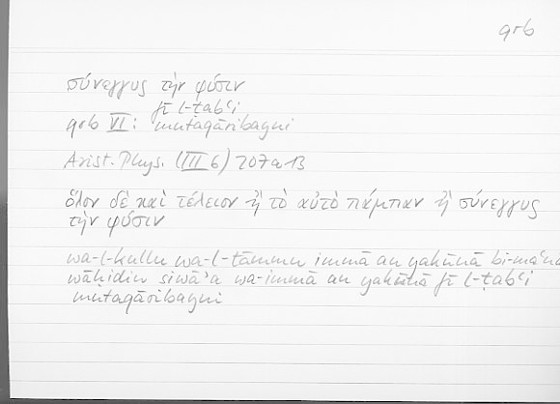 qrb
σύνεγγυς τὴν φύσιν
fī l-ṭabʿi
qrb VI: mutaqāribayni
Arist. Phys. (III 6) 207a13
ὅλον δὲ καὶ τέλειον ἢ τὸ αὐτὸ πάμπαν ἢ σύνεγγυς
τὴν φύσιν
wa-l-kullu wa-l-tāmmu immā an yakūnā bi-maʿnā
wāḥidin siwāʾa wa-immā an yakūnā fī l-ṭabʿi
mutaqāribayni